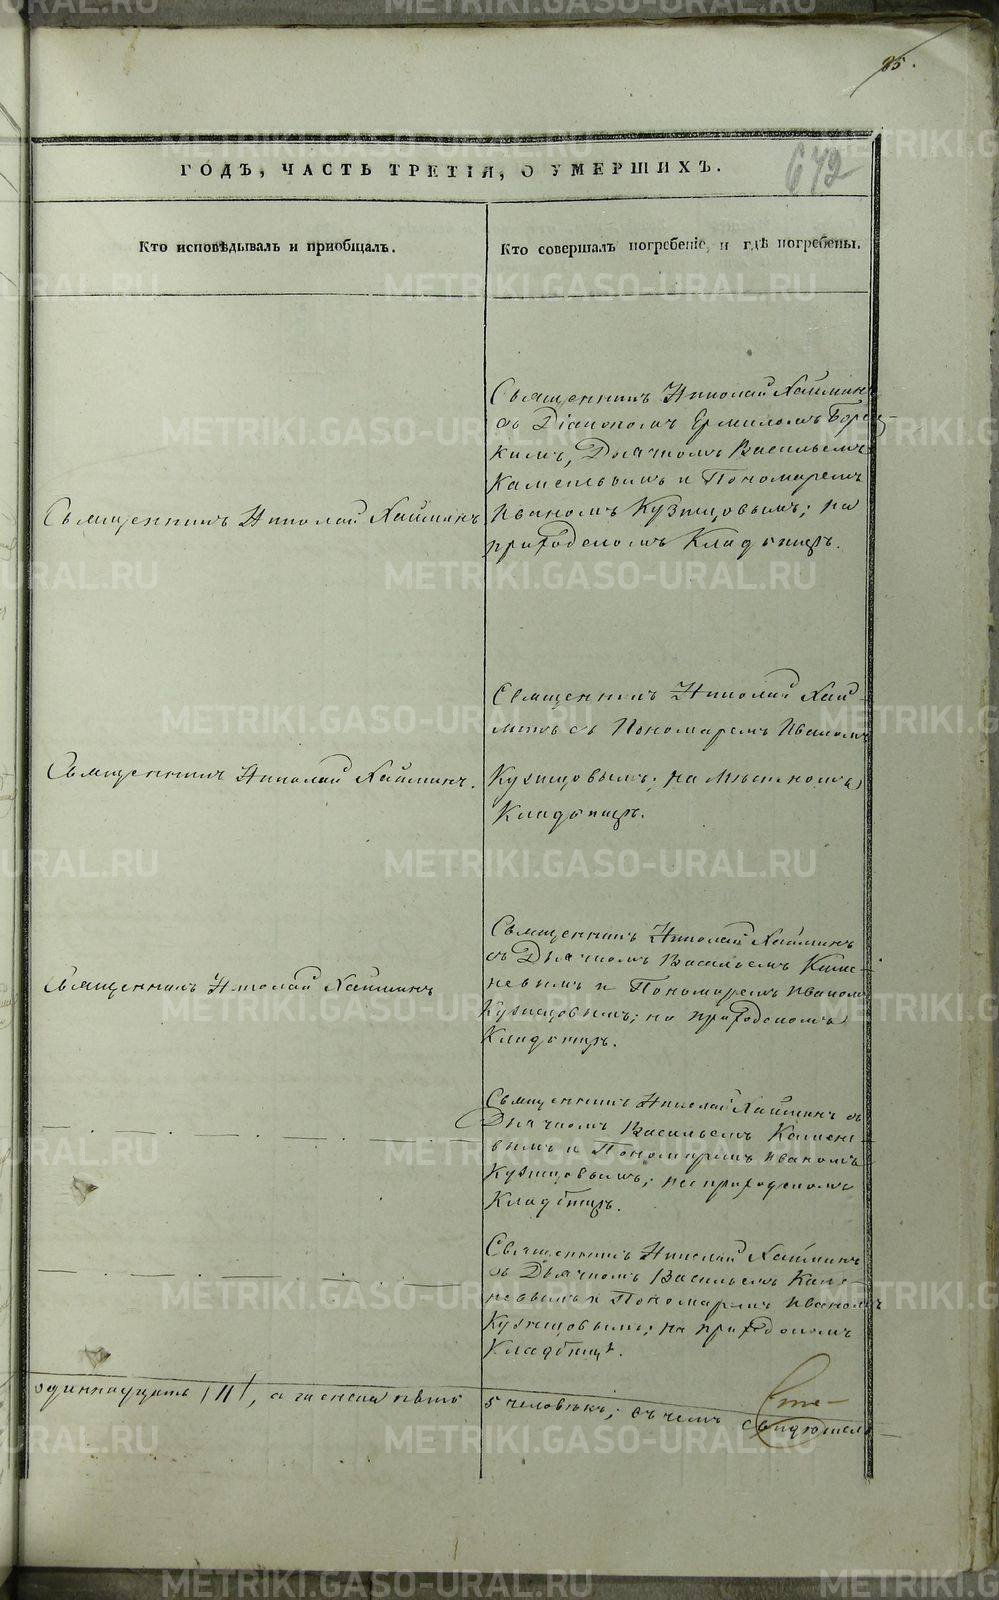 85.
ГОДЪ, ЧАСТЬ ТРЕТІЯ, О УМЕРШИХЪ.
672
Кто исповѣдывалъ и пріобщалъ.
Кто совершалъ погребеніе, и гдѣ погребены.
Священникъ Николай Хаймин
съ Діакономъ Ермиломъ Борец-
кимъ, Дьячкомъ Васильемъ
Каменевымъ и Пономаремъ
Иваномъ Кузнецовымъ; на
приходскомъ Кладбищѣ.
Священникъ Николай Хайминъ
Священникъ Николай Хай-
минъ съ Пономаремъ Иваномъ
Кузнецовымъ; на мѣстномъ
Кладбищѣ.
Священникъ Николай Хайминъ.
Священникъ Николай Хайминъ
съ Дьячкомъ Васильемъ Каме-
невымъ и Пономаремъ Иваномъ
Кузнецовымъ; на приходскомъ
Кладбищѣ.
Священникъ Николай Хайминъ
Священникъ Николай Хайминъ съ
Дьячкомъ Васильемъ Камене-
вымъ и Пономаремъ Иваномъ
Кузнецовымъ; на приходскомъ
Кладбищѣ.
Священникъ Николай Хайминъ
съ Дьячкомъ Васильемъ Каме-
невымъ и Пономаремъ Иваномъ
Кузнецовымъ; на приходскомъ
Кладбищѣ.
одиннадцать /11/, а женска пять
5 человѣкъ; въ чемъ свидѣтель-
METRIKI.GASO-URAL.RU